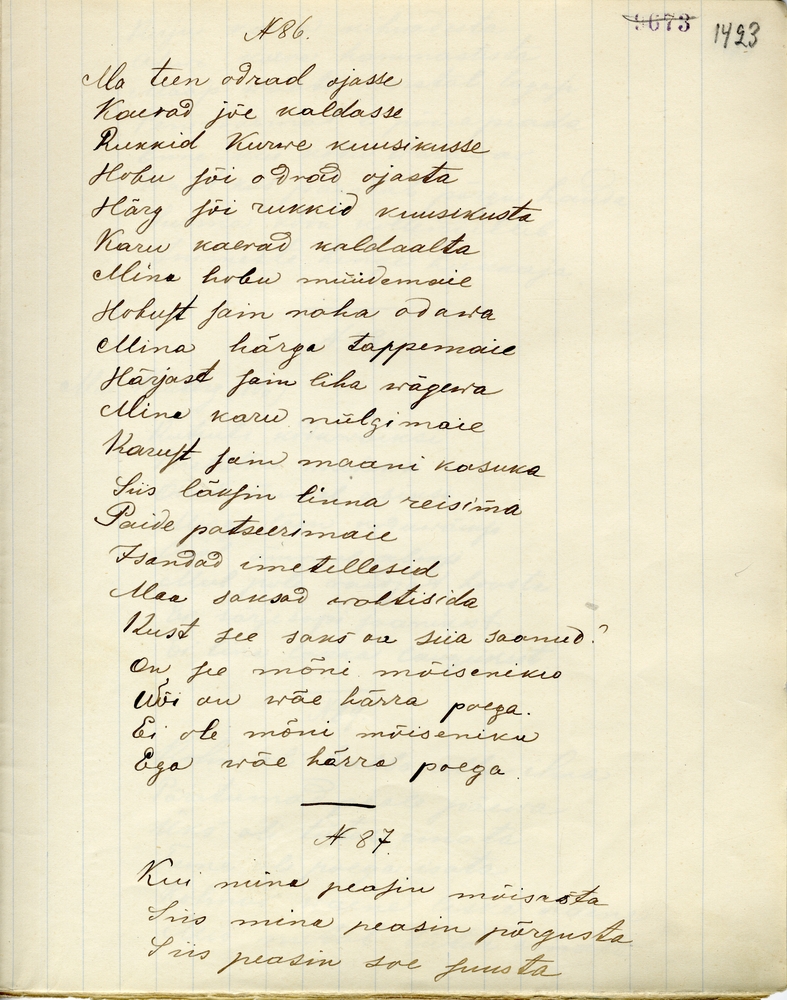 9673 1423
N 86.
Ma teen odrad ojasse
Kaerad jõe kaldasse
Rukkid Kurwe kuusikusse
Hobu sõi odrad ojasta
Härg sõi rukkid kuusikusta
Karu kaerad kaldaalta
Mina hobu müüdemaie
Hobust sain raha odawa
Mina härga tappemaie
Härjast sain liha wägewa
Mina karu nülgimaie
Karust sain maani kasuka
Siis läksin linna reisima
Paide patseerimaie
Isandad imetellesid
Maa saksad wahtisida
Kust see saks on siia saanud?
On see mõni mõiseniku
Wõi on wäe härra poega.
Ei ole mõni mõiseniku
Ega wäe härra poega.
N 87.
Kui mina peasin mõisasta
Siis mina peasin põrgusta
Siis peasin soe suusta